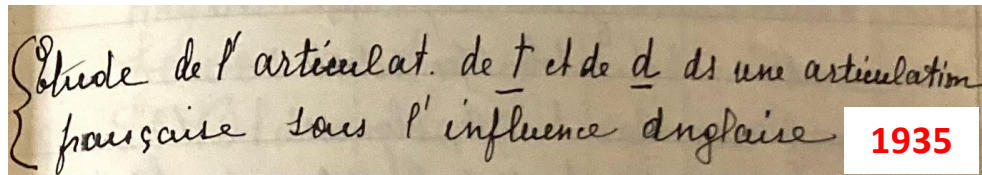 Etude de l'articulat. de t et de d ds une articulation
française sous l'influence anglaise
1935